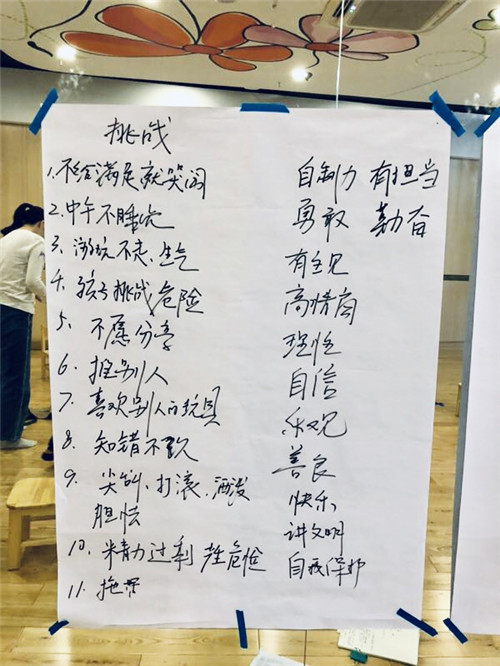 挑战
1. 不给满足就哭闹
2. 中午不睡觉
3. 游玩不走、生气
4. 孩子挑战危险
5. 不愿分享
6. 推别人
7. 喜欢别人的玩具
8. 知错不改
9. 尖叫、打滚、洒泼
胆怯
10. 精力过剩 危险
11.
自制力 有担当
勇敢 勤奋
有主见
高情商
理性
自信
乐观
善良
快乐
讲文明
自我保护